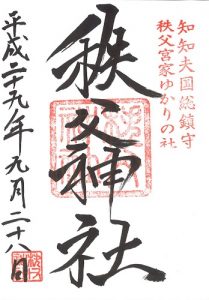 知知夫国総鎮守
秩父宮家ゆかりの社
秩父神社
平成二十九年九月二十八日